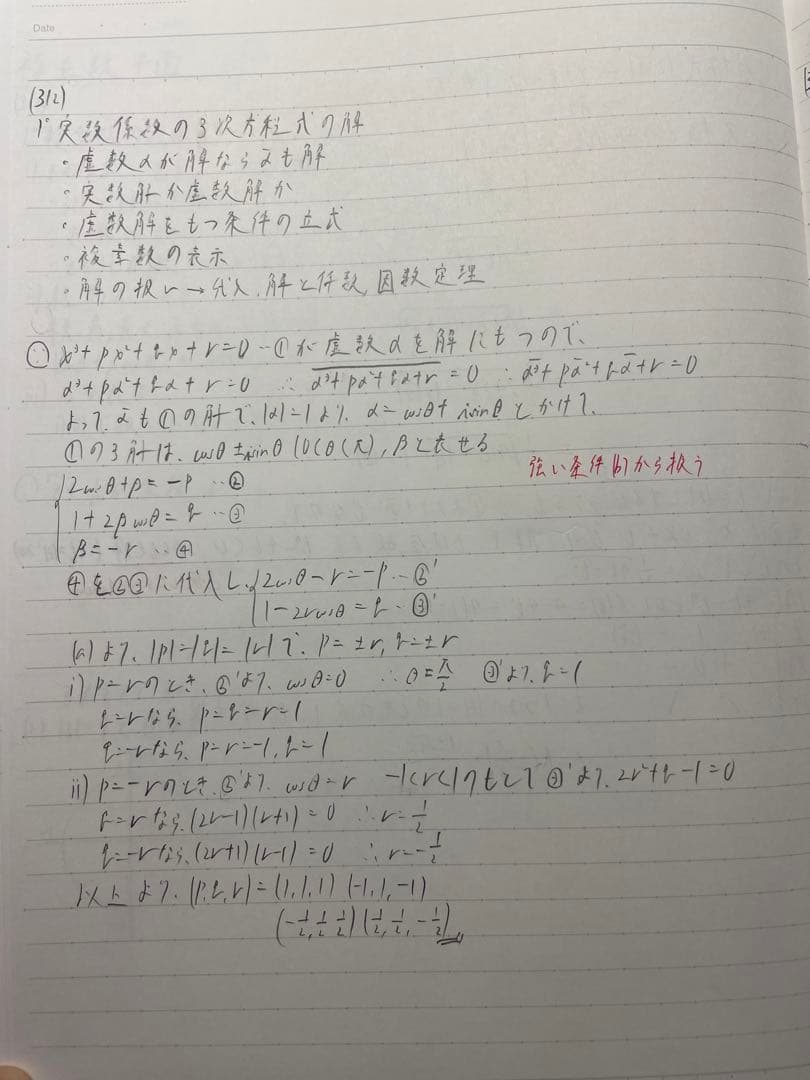 Date
(312)
1° 実数係数の3次方程式の解
・虚数αが解ならᾱも解
・実数解か虚数解か
・虚数解をもつ条件の立式
・複素数の表示
・解の扱い→代入、解と係数、因数定理
∵ x³+px²+qx+r=0…①が虚数αを解にもつので、
α³+pα²+qα+r=0 ∴ \overline{α³+pα²+qα+r}=0 ∴ ᾱ³+pᾱ²+qᾱ+r=0
よって、ᾱも①の解で、|α|=1より、α=cosθ+isinθとかけて、
①の3解は、cosθ±isinθ(0<θ<π),βと表せる
強い条件(b)から扱う
2cosθ+β=-p…②
1+2βcosθ=q…③
β=-r…④
④を②③に代入し、2cosθ-r=-p…②'
1-2rcosθ=q…③'
(a)より、|p|=|q|=|r|で、p=±r,q=±r
i) p=rのとき、②'より、cosθ=0 ∴θ=π/2 ③'より、q=1
q=rなら、p=q=r=1
q=-rなら、p=r=-1,q=1
ii) p=-rのとき、②'より、cosθ=r -1<r<1のもとで③'より、2r²+q-1=0
q=rなら、(2r-1)(r+1)=0 ∴r=1/2
q=-rなら、(2r+1)(r-1)=0 ∴r=-1/2
以上より、(p,q,r)=(1,1,1)(-1,1,-1)
(-1/2,1/2,1/2)(1/2,1/2,-1/2)